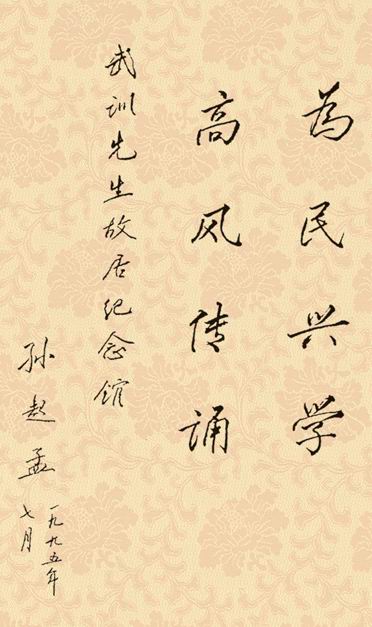 为民兴学
高风传诵
武训先生故居纪念馆
孙起孟
一九九五年
七月